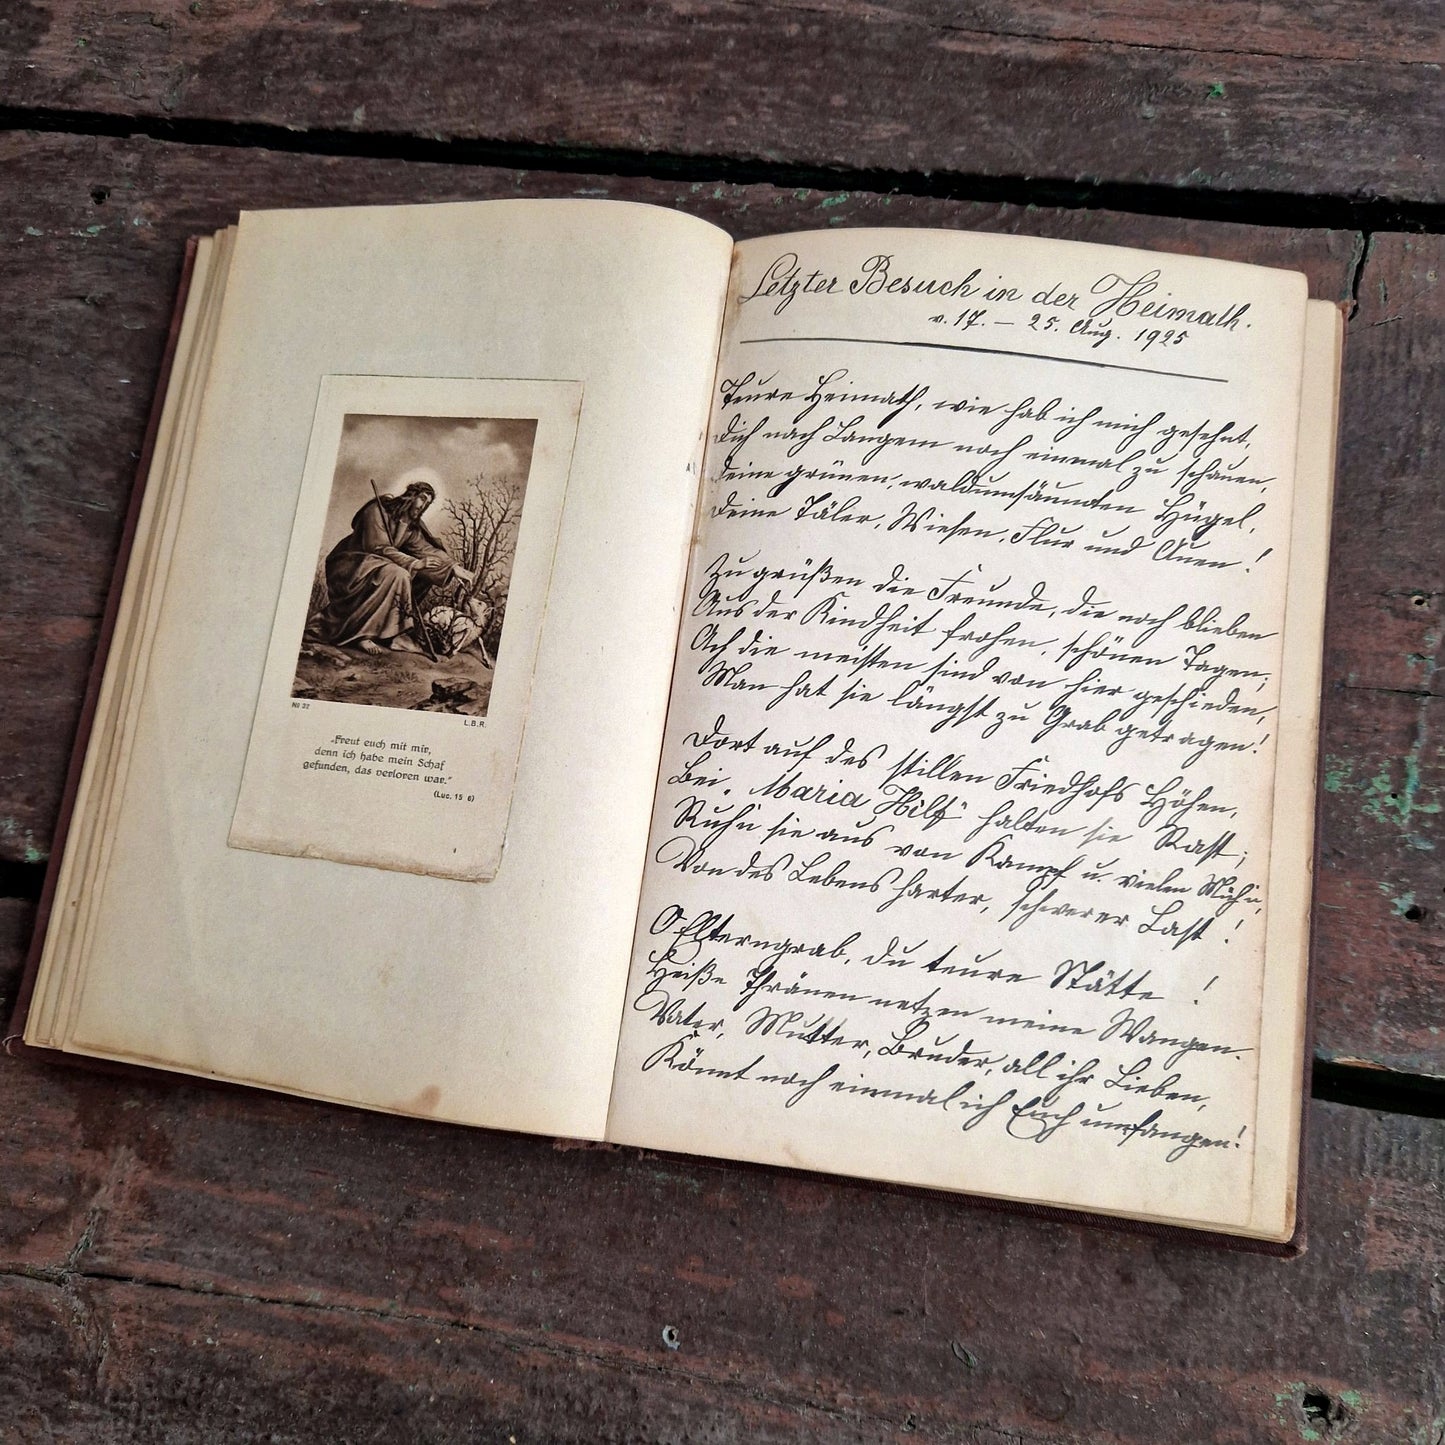 № 37
L.B.R.
„Freut euch mit mir,
denn ich habe mein Schaf
gefunden, das verloren war.“
(Luc. 15 6)
Letzter Besuch in der Heimath.
v. 17. – 25. Aug. 1925
Teure Heimath, wie hab ich mich gesehnt,
Dich nach Langem noch einmal zu schauen,
Deine grünen, waldumsäumten Hügel,
Deine Täler, Wiesen, Flur und Auen!
Zu grüßen die Freunde, die noch blieben
Aus der Kindheit frohen, schönen Tagen;
Ach die meisten sind von hier geschieden,
Man hat sie längst zu Grab getragen!
Dort auf des stillen Friedhofs Höhen,
Bei „Maria Hilf“ halten sie Rast;
Ruh'n sie aus von Kampf u. vielen Müh'n,
Von des Lebens harter, schwerer Last!
O Elterngrab, du teure Stätte!
Heiße Thränen netzen meine Wangen.
Vater, Mutter, Bruder, all ihr Lieben,
Könnt noch einmal ich Euch umfangen!